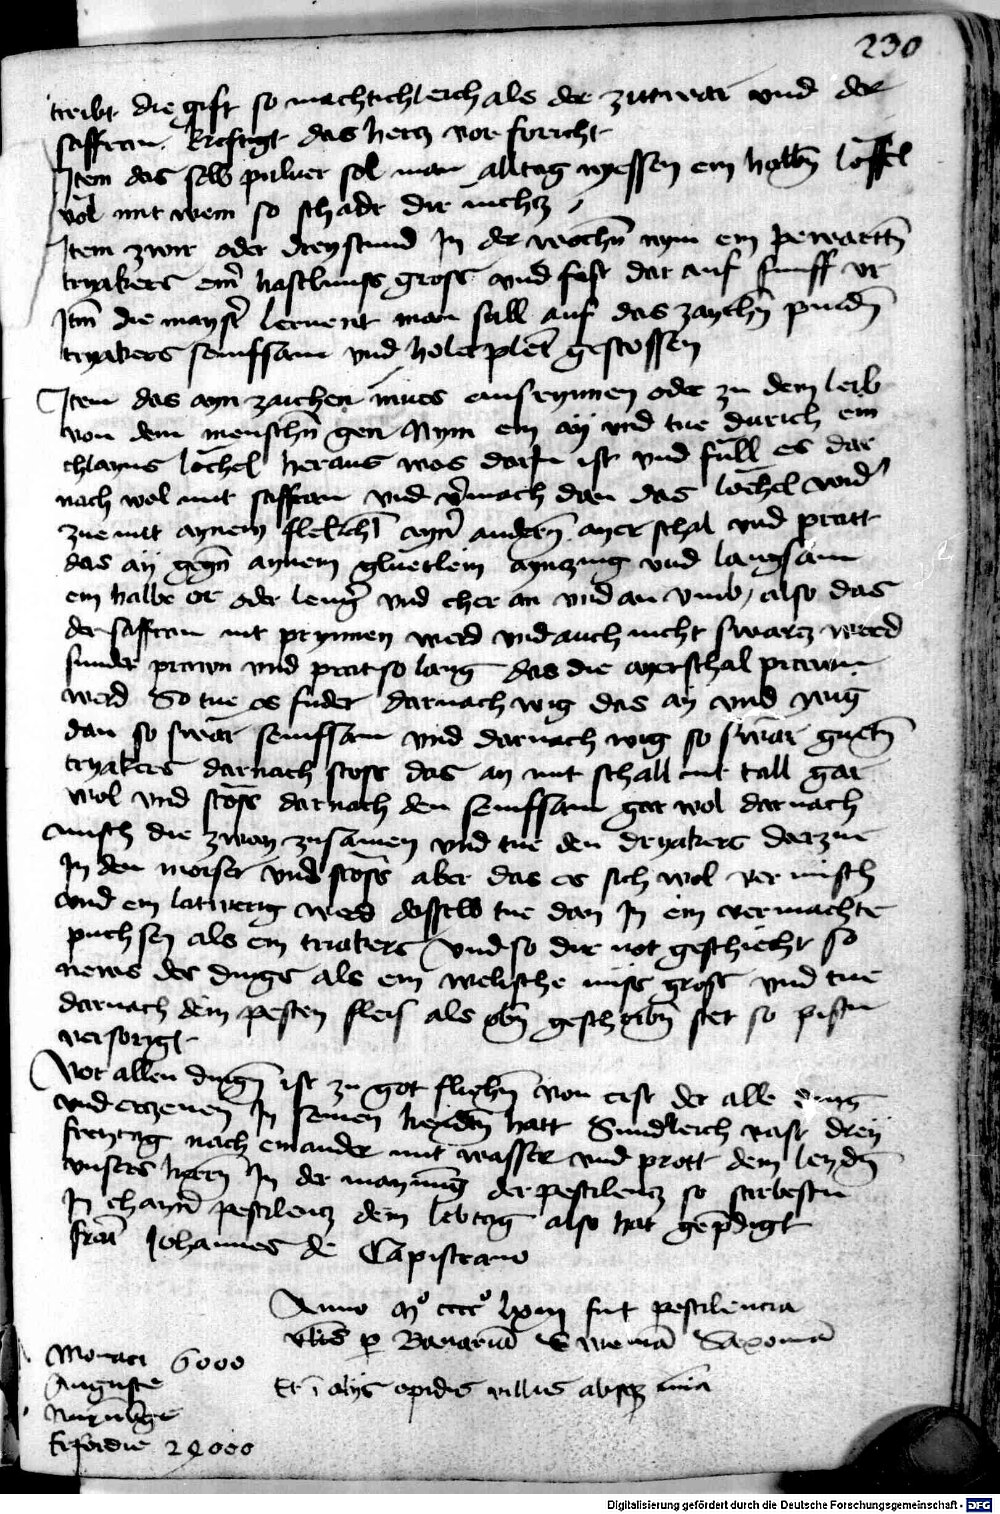 230
treibt die gift so machtichleich als der zitwar und der
saffran kreftigt das hercz vor foricht
Item das selb puluer sol man alltag nyessen ein halbn loffel
vol mit wein so schadt dir nichcz
Item zwir oder dreystund In der wochn nym ein pewartn
tryakers einr haslnuss gross und fast dar auf funff vr
Itm die mayster lernent man sull auf das zaychn pindn
tryakers semfsam vnd holerpleter gestossen
Item das ayn zaichen mues ausrynnen oder zu dem leib
von dem menschn gen Nym ein ay vnd tue durich ein
chlayns lochel heraus was darin ist vnd full es dar
nach wol mit saffran vnd vermach dan das lochel wider
zue mit aynem flekchl ayner andern ayer schal vnd pratt
das ay gegn aynem gluetlein aynczing vnd langsam
ein halbe or oder lenger vnd cher an vnd an vmb, also das
der saffran nit prynnen werd vnd auch nicht swarcz werd
sunder prawn vnd prat so lang das die ayerschal prawn
werd So tue es fuder darnach wig das ay vnd wig
dan so swar semfsam vnd darnach wig so swar guetn
tryakers darnach stoss das ay mit schall mit all gar
wol vnd stoss darnach den semfsam gar wol darnach
misch die zway zusamen vnd tue den dryakers darzue
In den morser vnd stoss aber das es sich wol ver misch
vnd ein latwerig werd dasselb tue dan In ein vermachte
puchsen als ein triakers vnd so dir not geschiecht so
news des dings als ein welische nuss gross vnd tue
darnach dein pesten fleis als obn geschribn stet so pistu
versorigt
Vor allen dingn ist zu got fliehn von erst der alle ding
vnd erczeney In seinen henden hatt Sunderleich vast drey
freytag nach einander mit wasser vnd prott dem leydn
vnsers herrn In der maynung der pestilencz so stirbestu
In chayner pestilencz dein lebtag also hat gepredigt
frater Johannes de Capistrano
Anno Mo cccco lxiii fuit pestilencia
per Bauariam Sweuiam Saxoniam
Monaci 6000
Auguste
Et in alijs opidis villis absque
Nurnberge
Erfordie 24000
Digitalisierung gefördert durch die Deutsche Forschungsgemeinschaft - DFG